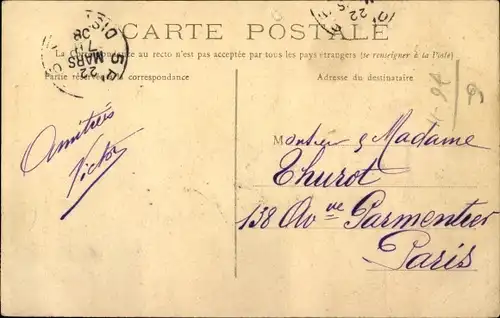 CARTE POSTALE
La correspondance au recto n'est pas acceptée par tous les pays étrangers (se renseigner à la Poste)
Partie réservée à la correspondance
Adresse du destinataire
22
MARS
08
Amitiés
Victor
Monsieur & Madame
Thurot
138 Av ue Parmentier
Paris